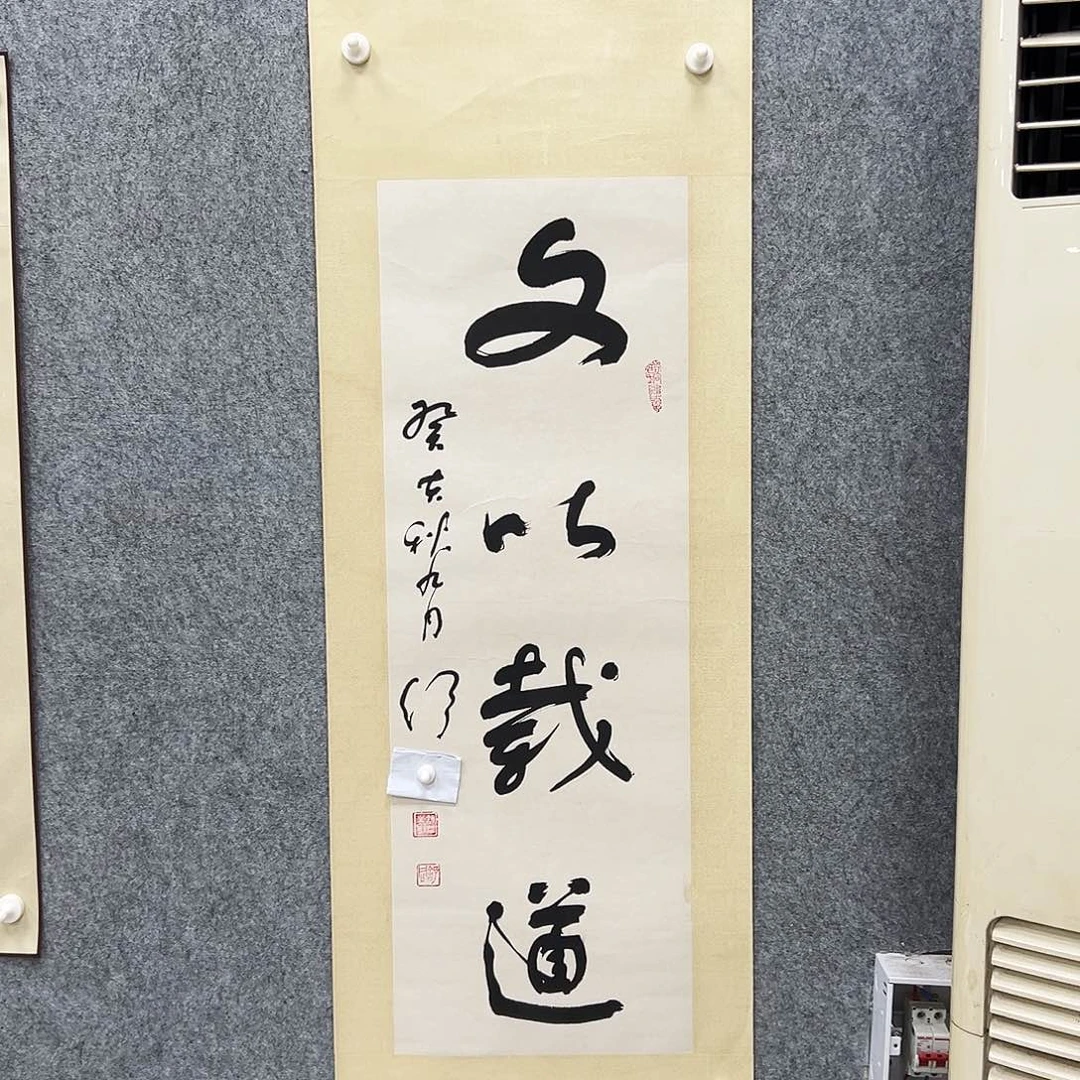 文以載道
癸亥秋九月